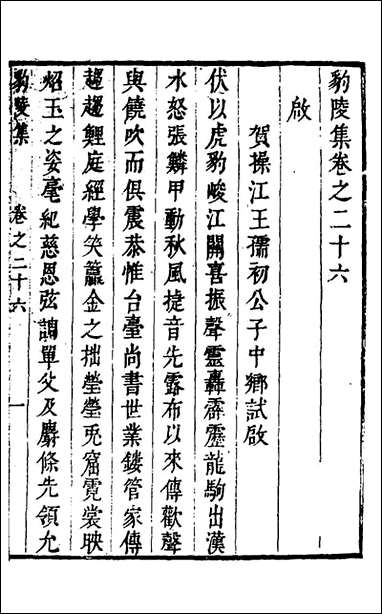 豹陵集卷之二十六
啟
賀操江王孺初公子中鄉試啟
伏以虎豹峻江關喜振聲靈轟霹靂龍駒出漢
水怒張鱗甲動秋風捷音先露布以來傳歡聲
與饒吹而俱震恭惟台臺尚書世業鏤管家傳
趨趨鯉庭經學笑籯金之拙瑩瑩兎窟霓裳映
炤玉之姿毫紀慈恩弦謌單父及麝條先領允
豹陵集
卷之二十六
一